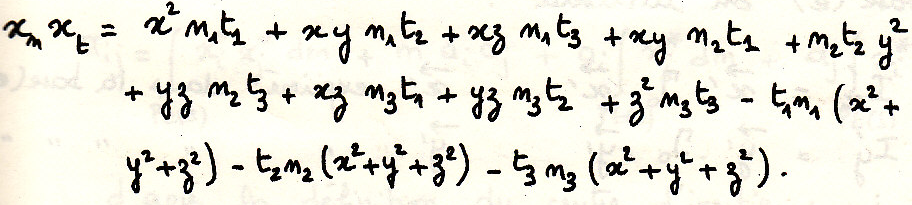 xₙxₜ = x² n₁t₁ + xy n₁t₂ + xz n₁t₃ + xy n₂t₁ + n₂t₂ y²
+ yz n₂t₃ + xz n₃t₁ + yz n₃t₂ + z² n₃t₃ - t₁n₁ (x²+
y²+z²) - t₂n₂ (x²+y²+z²) - t₃n₃ (x²+y²+z²).